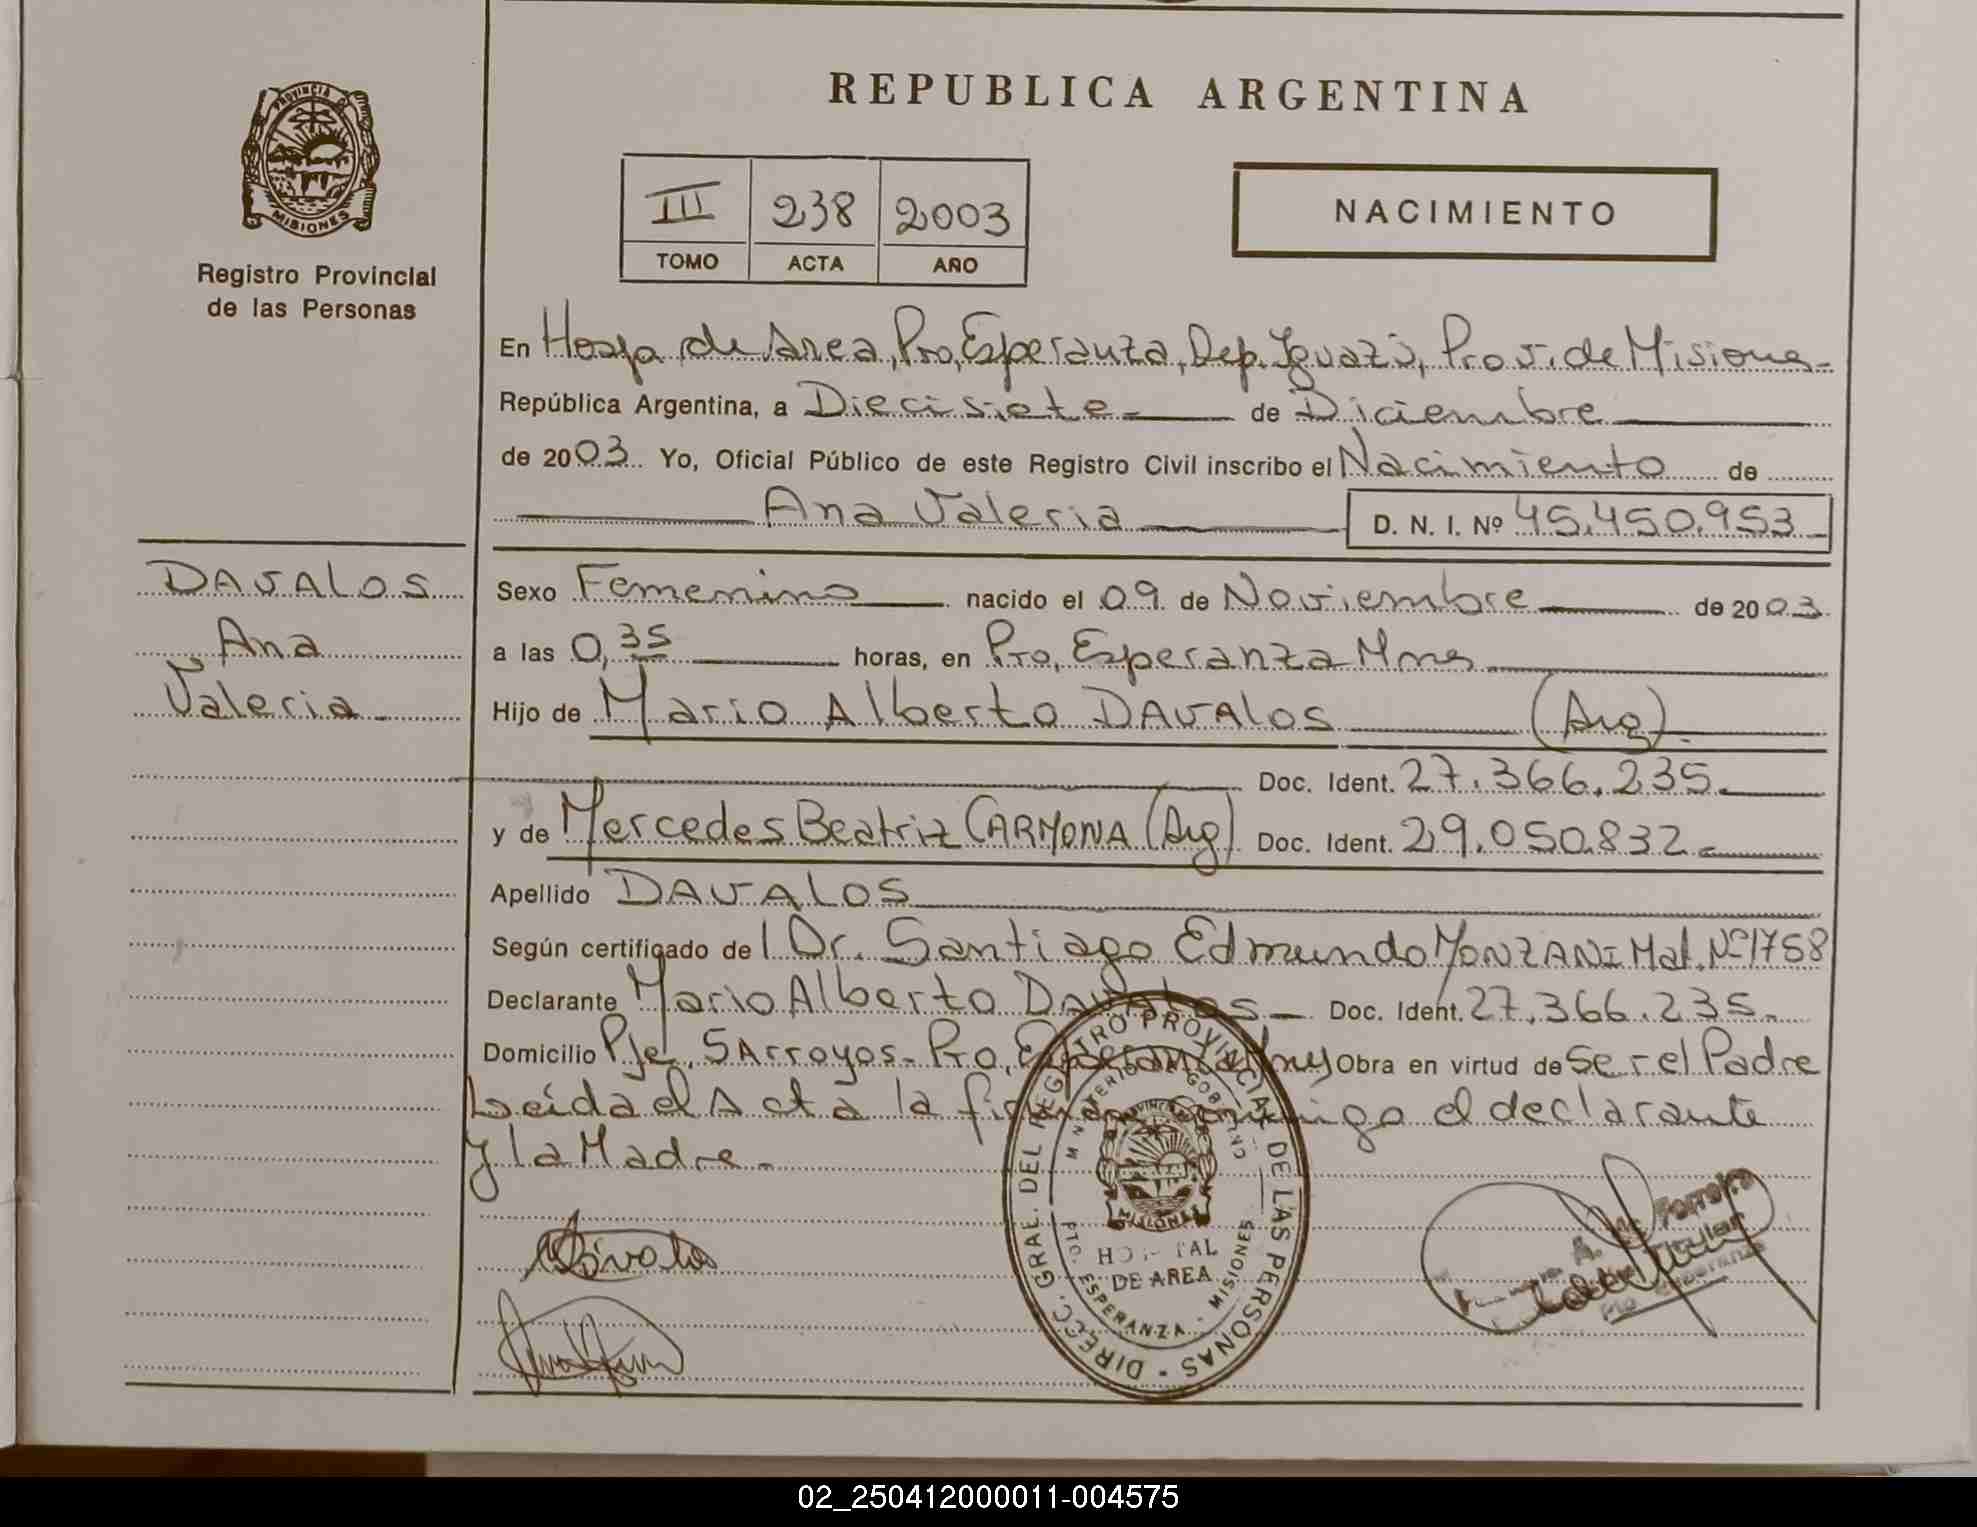 REPUBLICA ARGENTINA
PROVINCIA DE
MISIONES
Registro Provincial
de las Personas
III 238 2003
TOMO ACTA AÑO
NACIMIENTO
En Hosp. de Area, Pto, Esperanza, Dep. Iguazú, Prov. de Misiones-
República Argentina, a Diecisiete- de Diciembre
de 2003 Yo, Oficial Público de este Registro Civil inscribo el Nacimiento de
Ana Valeria D. N. I. Nº 45.450.953
DAVALOS
Ana
Valeria
Sexo Femenino nacido el 09 de Noviembre de 2003
a las 0,35 horas, en Pto, Esperanza Mnes
Hijo de Mario Alberto DAVALOS (Arg).
Doc. Ident. 27.366.235.
y de Mercedes Beatriz CARMONA (Arg) Doc. Ident. 29.050.832.
Apellido DAVALOS
Según certificado de l Dr. Santiago Edmundo MONZANI Mat. Nº 1758
Declarante Mario Alberto Davalos - Doc. Ident. 27.366.235.
Domicilio Pje, 5 Arroyos- Pto, Esperanza Obra en virtud de Ser el Padre
Leída el Acta la firman conmigo el declarante
y la Madre.
DIRECC. GRAL. DEL REGISTRO PROVINCIAL DE LAS PERSONAS
MINISTERIO GOBIERNO
PROVINCIA
MISIONES
HOSPITAL
DE AREA
PTO. ESPERANZA - MISIONES
Ferreira
Titular
02_250412000011-004575